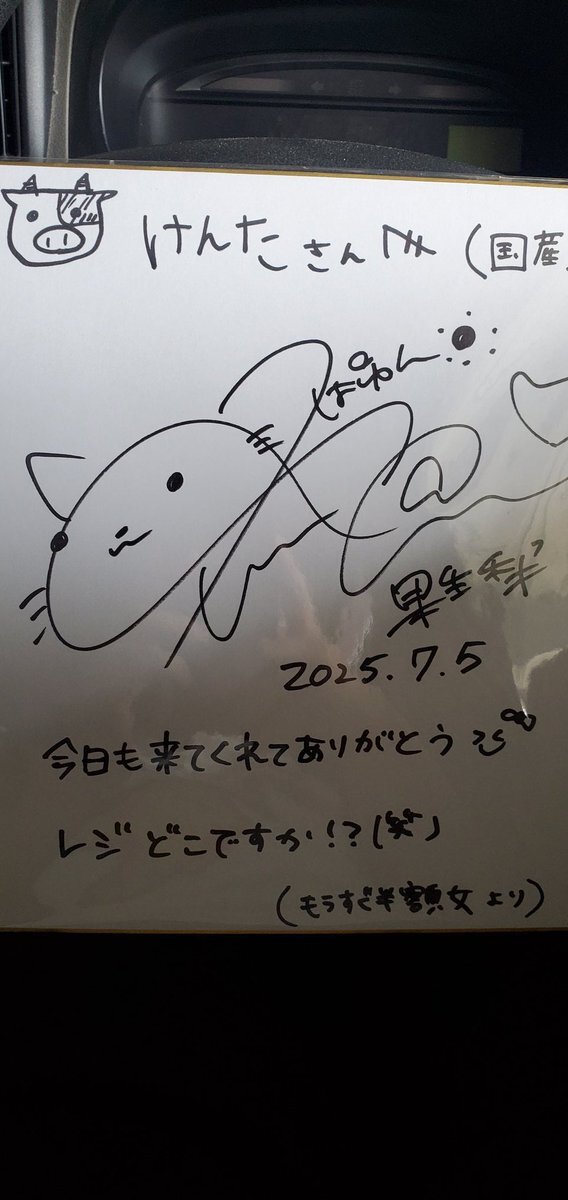 けんたさんへ (国産
ぽゆん
2025.7.5
今日も来てくれてありがとう
レジどこですか!?(笑)
(もうすぐ半額女より)